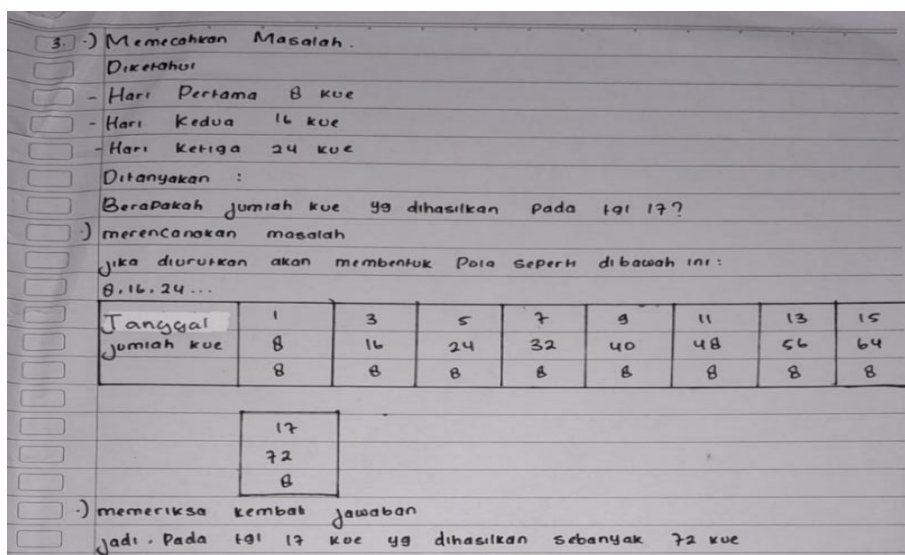 3. .) Memecahkan Masalah.
Diketahui
- Hari Pertama 8 kue
- Hari Kedua 16 kue
- Hari Ketiga 24 kue
Ditanyakan :
Berapakah jumlah kue yg dihasilkan pada tgl 17?
.) merencanakan masalah
jika diurutkan akan membentuk Pola seperti dibawah ini :
8, 16, 24 ...
Tanggal 1 3 5 7 9 11 13 15
jumlah kue 8 16 24 32 40 48 56 64
8 8 8 8 8 8 8 8
17
72
8
.) memeriksa kembali jawaban
jadi, Pada tgl 17 kue yg dihasilkan sebanyak 72 kue